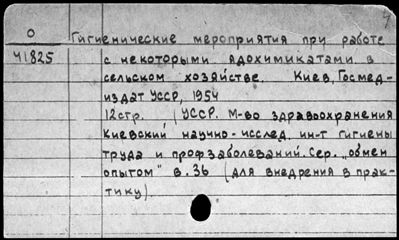 7
О Гигиенические мероприятия при работе
41825 с некоторыми ядохимикатами в
сельском хозяйстве. Киев, Госмед-
издат УССР, 1954
12стр. (УССР. М-во здравоохранения
Киевский научно-исслед. ин-т гигиены
труда и профзаболеваний. Сер. „обмен
опытом" в. 36 (для внедрения в прак-
тику).